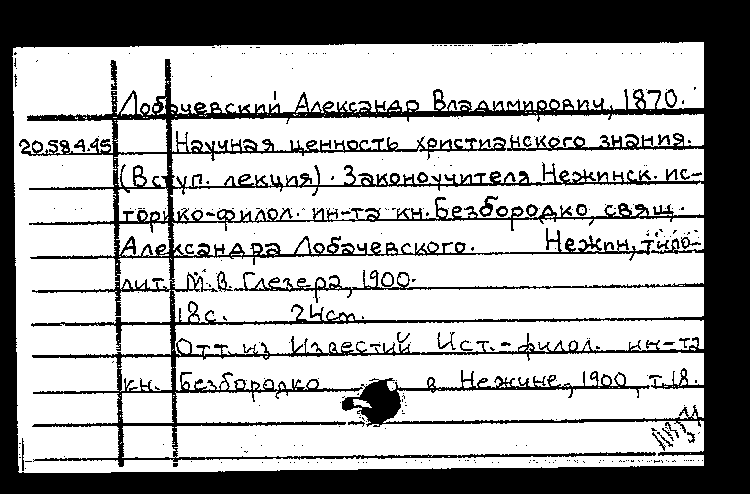 Лобачевский, Александр Владимирович, 1870.
20.58.4.45 Научная ценность христианского знания.
(Вступ. лекция). Законоучителя Нежинск. ис-
торико-филол. ин-та кн. Безбородко, свящ.
Александра Лобачевского. Нежин, типо-
лит. М.В. Глезера, 1900.
18с. 24см.
Отт. из Известий Ист.-филол. ин-та
кн. Безбородко в Нежине, 1900, т.18.